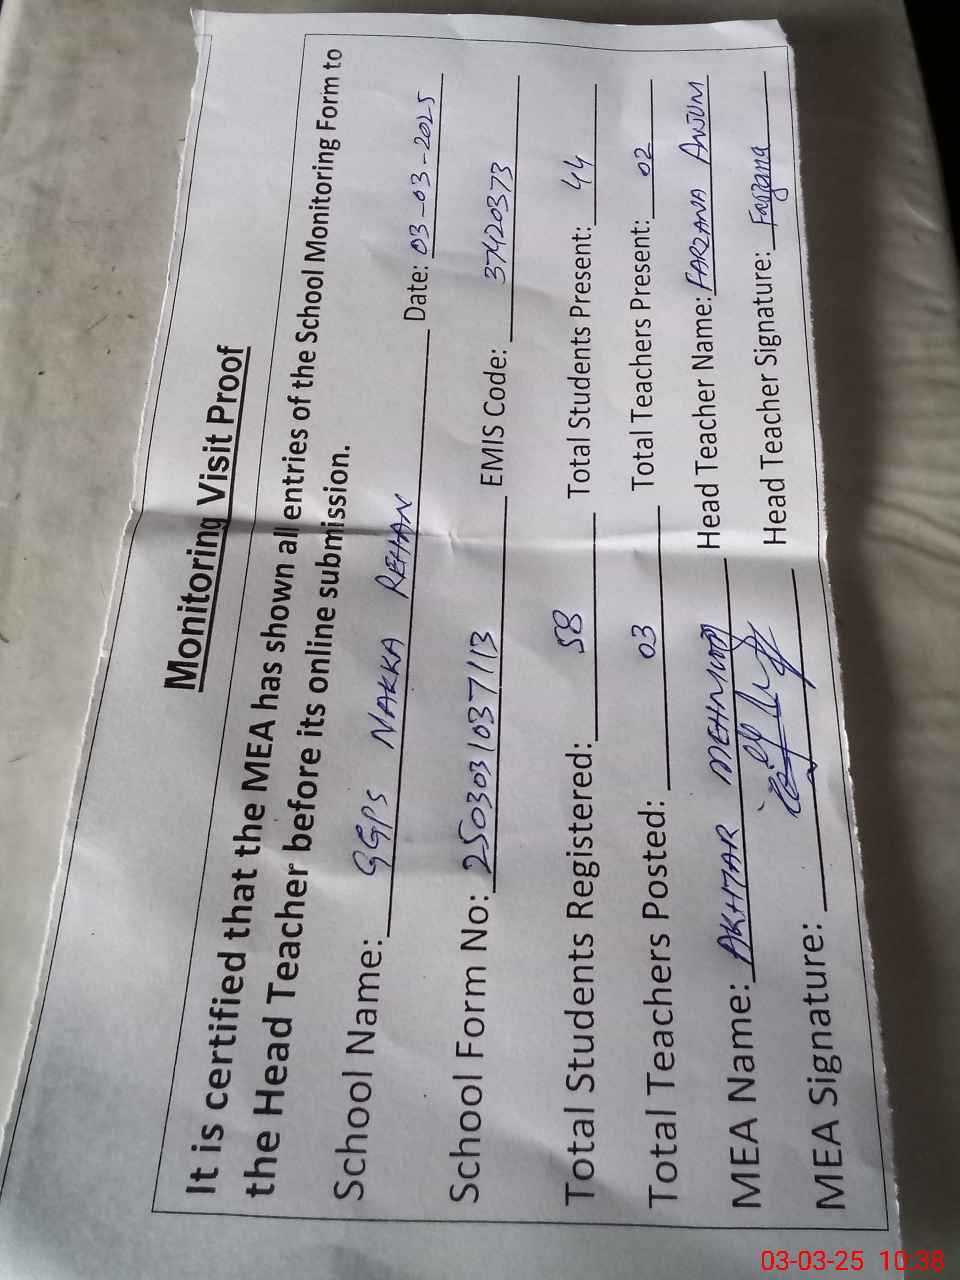 Monitoring Visit Proof
It is certified that the MEA has shown all entries of the School Monitoring Form to
the Head Teacher before its online submission.
School Name: GGPS NAKKA REHAN Date: 03-03-2025
School Form No: 2503031037113 EMIS Code: 37420373
Total Students Registered: 58 Total Students Present: 44
Total Teachers Posted: 03 Total Teachers Present: 02
MEA Name: AKHTAR MEHMOOD Head Teacher Name: FARZANA ANJUM
MEA Signature: Head Teacher Signature: Farzana
03-03-25 10:38